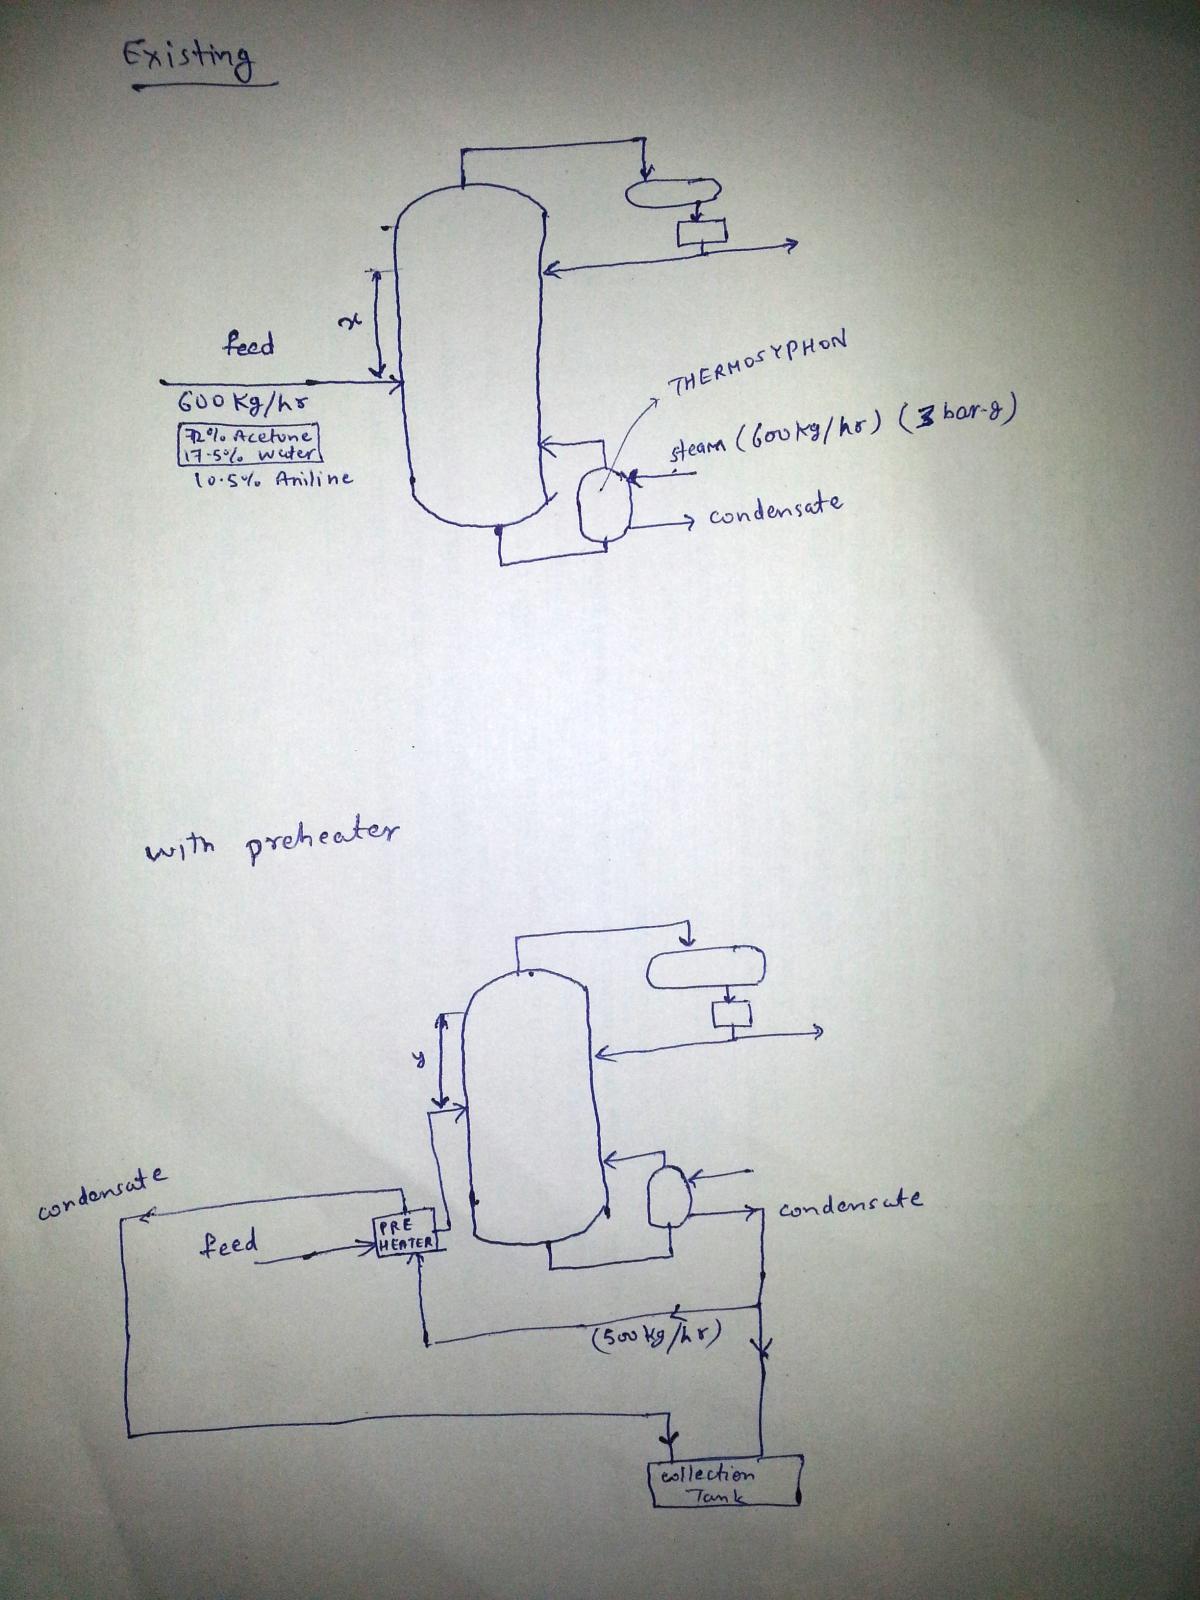 Existing
feed
x
600 Kg/hr
72% Acetone
17.5% water
10.5% Aniline
THERMOSYPHON
steam (600 kg/hr) (3 bar-g)
condensate
with preheater
y
condensate
feed
PRE
HEATER
condensate
(500 kg/hr)
collection
Tank